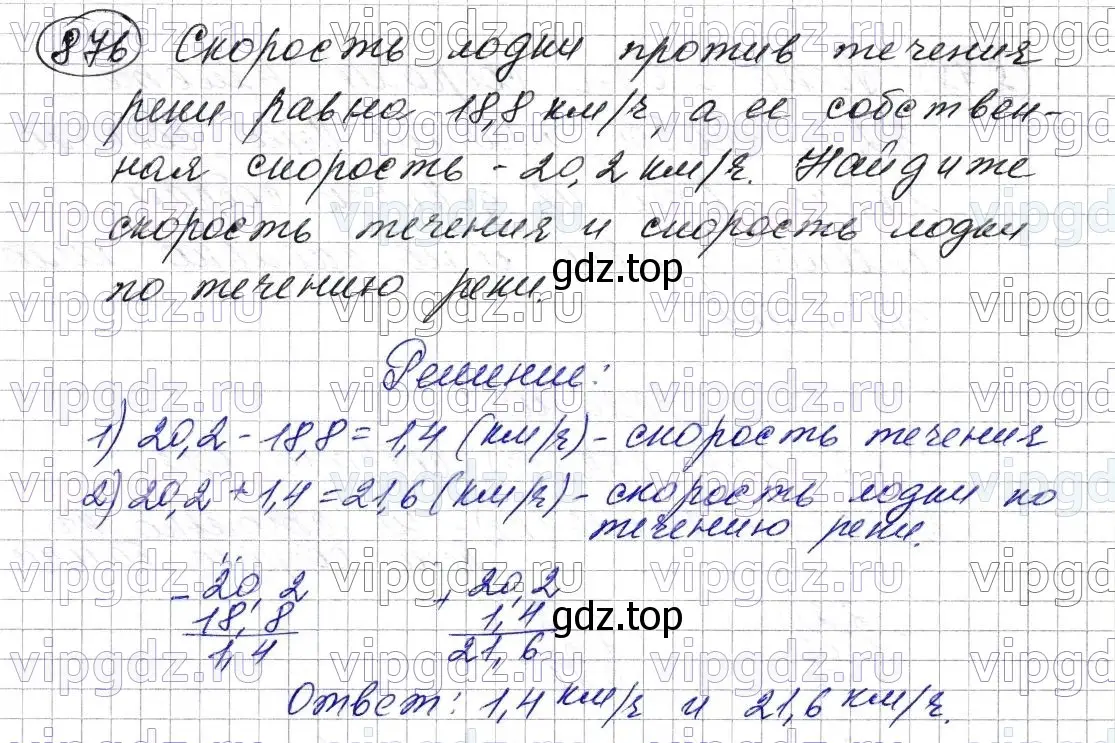 876 Скорость лодки против течения
реки равна 18,8 км/ч, а ее собствен-
ная скорость - 20,2 км/ч. Найдите
скорость течения и скорость лодки
по течению реки.
gdz.top
Решение:
1) 20,2 - 18,8 = 1,4 (км/ч) - скорость течения
2) 20,2 + 1,4 = 21,6 (км/ч) - скорость лодки по
течению реки.
- 20,2
18,8
1,4
+ 20,2
1,4
21,6
gdz.top
Ответ: 1,4 км/ч и 21,6 км/ч.
vipgdz.ru